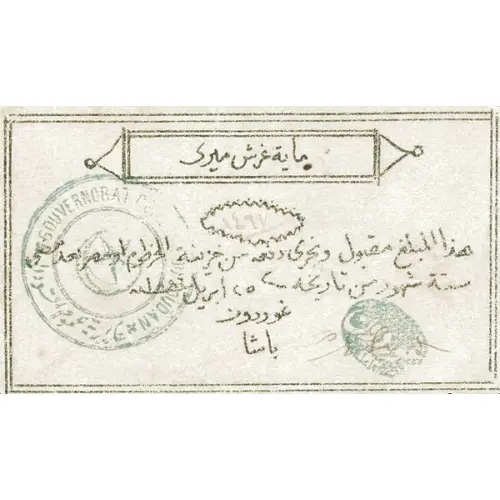 ماية غرش ميرى
١٤٦٧
هذا المبلغ مقبول ويجرى دفعه من خزينة الخرطوم او مصر بعد
ستة شهور من تاريخه ٢٥ ابريل
غوردون
باشا
GOUVERNORAT SOUDAN